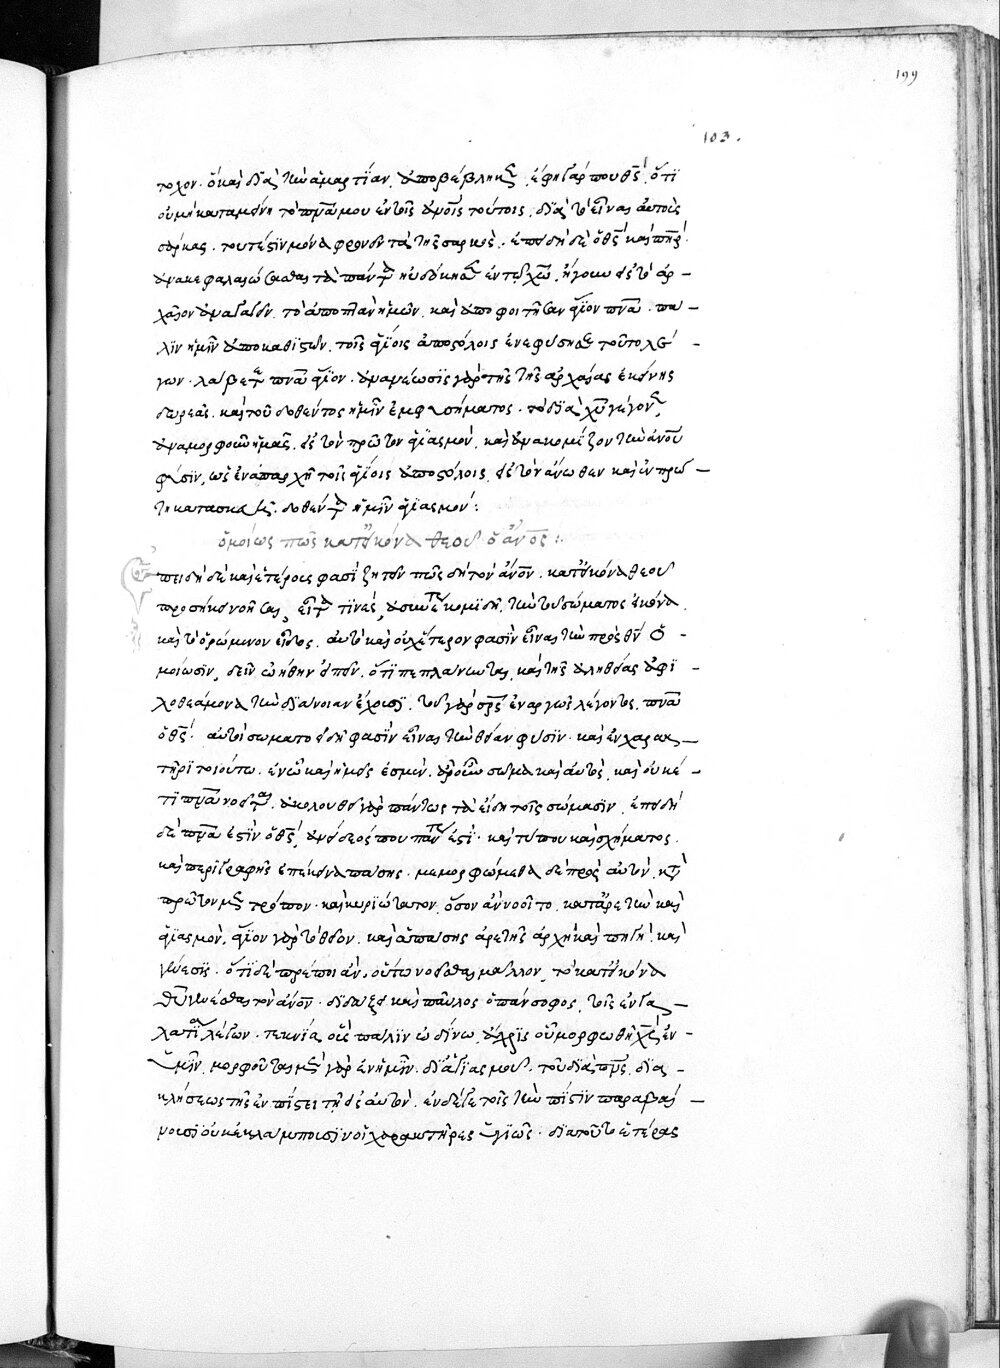 199
103.
τοχον· ὃ καὶ διὰ τὴν ἁμαρτίαν, ἀποβέβληκε. ἔφη γάρ που θς, ὅτι
οὐ μὴ καταμείνη τὸ πνα μου ἐν τοῖς ἀνοις τούτοις, διὰ τὸ εἶναι αὐτοὺς
σάρκας· τουτέστιν μόνα φρονεῖν τὰ τῆς σαρκός· ἐπειδὴ δὲ ὁ θς καὶ πηρ
ἀνακεφαλαιώσασθαι τὰ πάντα ηὐδόκησεν ἐν τῷ χω, ἤγουν εἰς τὸ ἀρ-
χαῖον ἀναγαγεῖν, τὸ ἀποπτὰν ἡμῶν, καὶ ἀποφοιτῆσαν ἅγιον πνα πά-
λιν ἡμῖν ἀποκαθιστῶν, τοῖς ἁγίοις ἀποστόλοις ἐνεφύσησε τοῦτο λέ-
γων· λάβετε πνα ἅγιον· ἀνανέωσις γὰρ τῆς τῆς ἀρχαίας ἐκείνης
δωρεᾶς, καὶ τοῦ δοθέντος ἡμῖν ἐμφυσήματος· τὸ διὰ χυ γέγονε,
ἀναμορφοῦν ἡμᾶς, εἰς τὸν πρῶτον ἁγιασμόν, καὶ ἀνακομίζον τὴν ἀνου
φύσιν, ὡς ἐν ἀπαρχῇ τοῖς ἁγίοις ἀποστόλοις, εἰς τὸν ἄνωθεν καὶ ἐν πρώ-
τῃ κατασκευῇ, δοθέντα ἡμῖν ἁγιασμόν:
ὁμοίως πῶς κατ' εἰκόνα θεοῦ ὁ ἀνος:
Ἐπειδὴ δὲ καὶ ἑτέροις φασὶ ζητεῖν πῶς δὴ τὸν ἀνον, κατ' εἰκόνα θεοῦ
προσήκει νοῆσαι, εἶτά τινες, τὴν τοῦ σώματος εἰκόνα,
καὶ τὸ ὁρώμενον εἶδος, αὐτὸ καὶ οὐχ ἕτερον φασὶν εἶναι τὴν πρὸς θν ὁ-
μοίωσιν, δεῖν ᾠήθην εἰπεῖν, ὅτι πεπλάνωται, καὶ τῆς ἀληθείας ἀφι-
λοθεάμονα τὴν διάνοιαν ἔχουσι, τοῦ γὰρ σρς ἐναργῶς λέγοντος, πνα
ὁ θς· αὐτοὶ σωματοειδῆ φασὶν εἶναι τὴν θείαν φύσιν· καὶ ἐν χαρακ-
τῆρι τοιούτω, ἐν ᾧ καὶ ἡμεῖς ἐσμέν. ἄρ' οὖν σῶμα καὶ αὐτός, καὶ οὐκέ-
τι πνα νοεῖται, ἀκολουθεῖ γὰρ πάντως τὰ εἴδη τοῖς σώμασιν, ἐπειδὴ
δὲ πνα ἐστὶν ὁ θς, ἀνείδεός που πάντως ἐστί· καὶ τύπου καὶ σχήματος,
καὶ περιγραφῆς ἐπέκεινα πάσης· μεμορφώμεθα δὲ πρὸς αὐτόν, κατὰ
πρῶτον μὲν τρόπον· καὶ κυριώτατον, ὅσον ἂν νοοῖτο, κατ' ἀρετὴν καὶ
ἁγιασμόν, ἅγιον γὰρ τὸ θεῖον, καὶ ἁπάσης ἀρετῆς ἀρχὴ καὶ πηγή, καὶ
γένεσις· ὅτι δὲ πρέποι ἄν, οὕτω νοεῖσθαι μᾶλλον, τὸ κατ' εἰκόνα
θυ γενέσθαι τὸν ἀνον· διδάξει καὶ παῦλος ὁ πάνσοφος, τοῖς ἐν γα-
λατία λέγων· τεκνία, οὓς πάλιν ὠδίνω, ἄχρις οὗ μορφωθῇ χς ἐν
ὑμῖν, μορφοῦται μὲν γὰρ ἐν ἡμῖν, δι' ἁγιασμοῦ, τοῦ διὰ πνς, διὰ
κλήσεως τῆς ἐν πίστει τῇ εἰς αὐτόν, ἐν δέ γε τοῖς τὴν πίστιν παραβαί-
νουσι οὐκ ἐκλάμπουσιν οἱ χαρακτῆρες ὑγιῶς· διὰ τοῦτο ἑτέρας